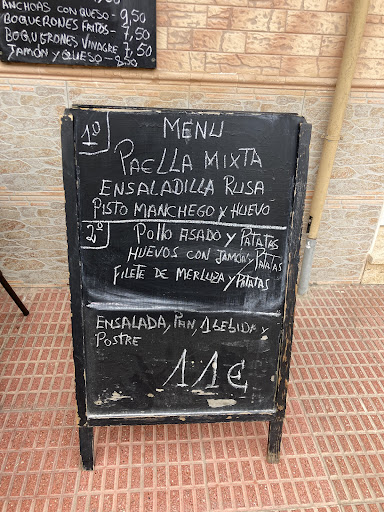 ANCHOAS CON QUESO - 9,50
BOQUERONES FRITOS - 7,50
BOQUERONES VINAGRE - 7,50
JAMÓN Y QUESO - 8,50
1º MENU
PAELLA MIXTA
ENSALADILLA RUSA
PISTO MANCHEGO Y HUEVO
2º POLLO ASADO Y PATATAS
HUEVOS CON JAMON Y PATATAS
FILETE DE MERLUZA Y PATATAS
ENSALADA, PAN, 1 BEBIDA Y
POSTRE
11€